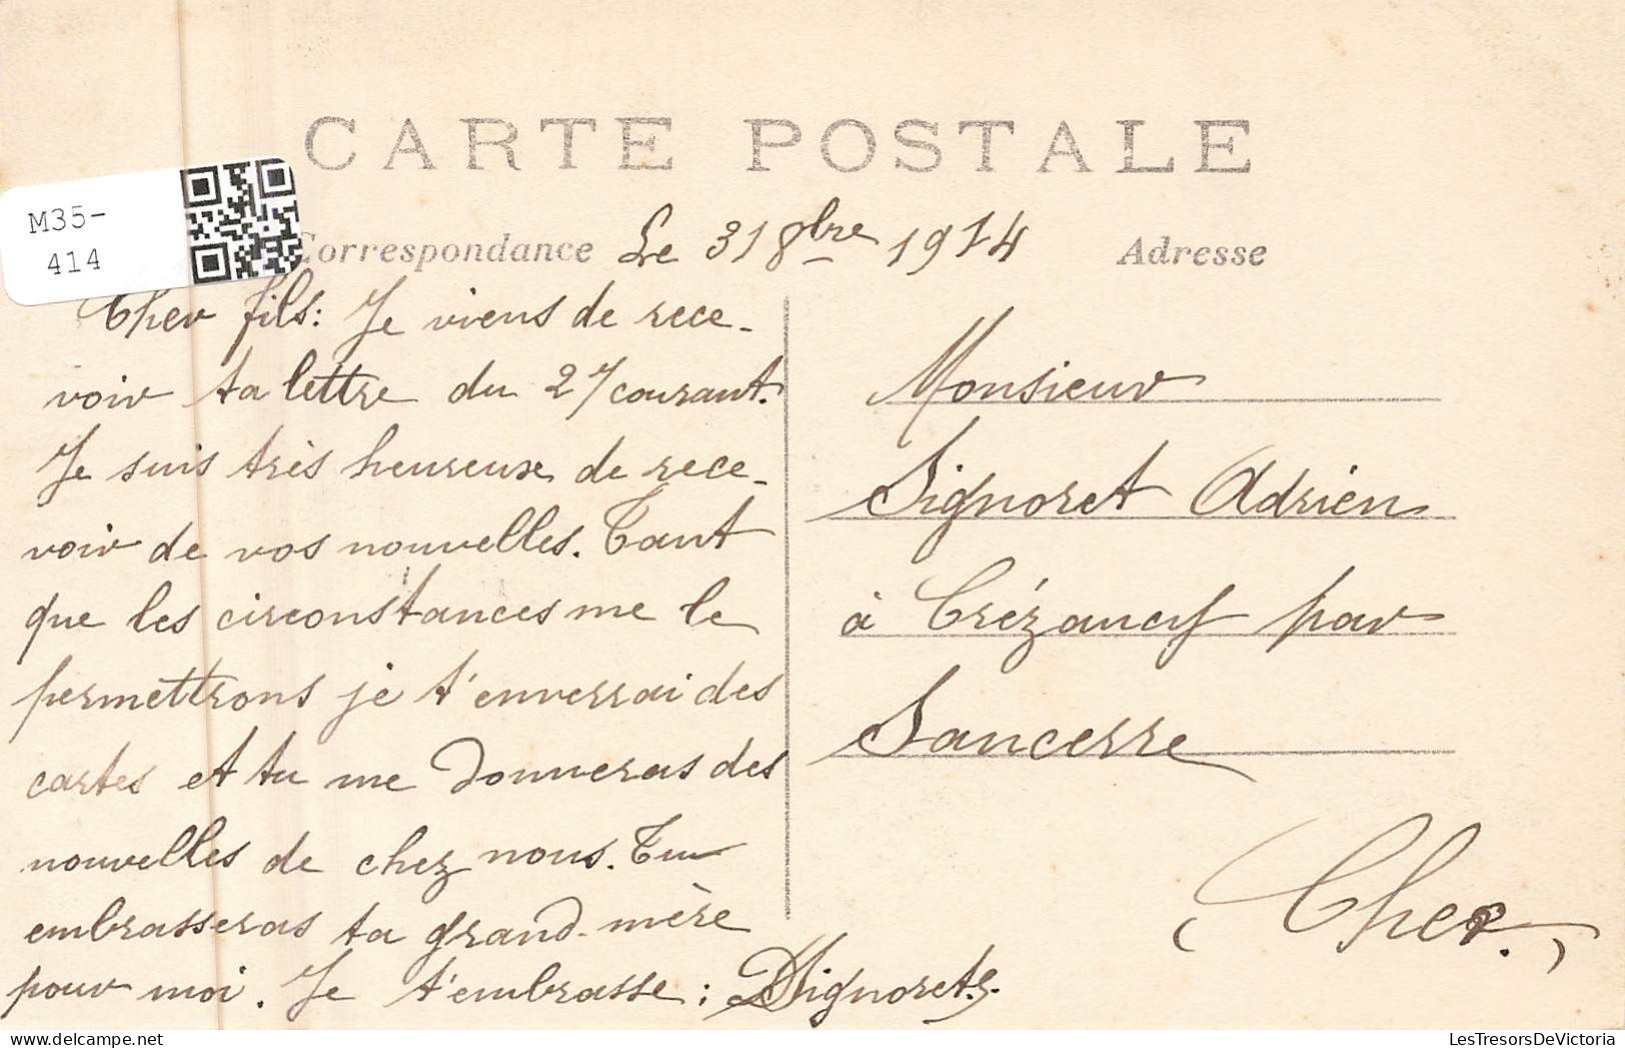 CARTE POSTALE
M35-
414
Correspondance Le 31 8bre 1914
Adresse
Cher fils: Je viens de rece-
voir ta lettre du 27 courant.
Je suis très heureux de rece-
voir de vos nouvelles. Tant
que les circonstances me le
permettrons je t'enverrai des
cartes et tu me donneras des
nouvelles de chez nous. Tu
embrasseras ta grand-mère
pour moi. Je t'embrasse: Signoret
Monsieur
Signoret Adrien
à Crézancy par
Sancerre
(Cher.)
LesTresorsDeVictoria